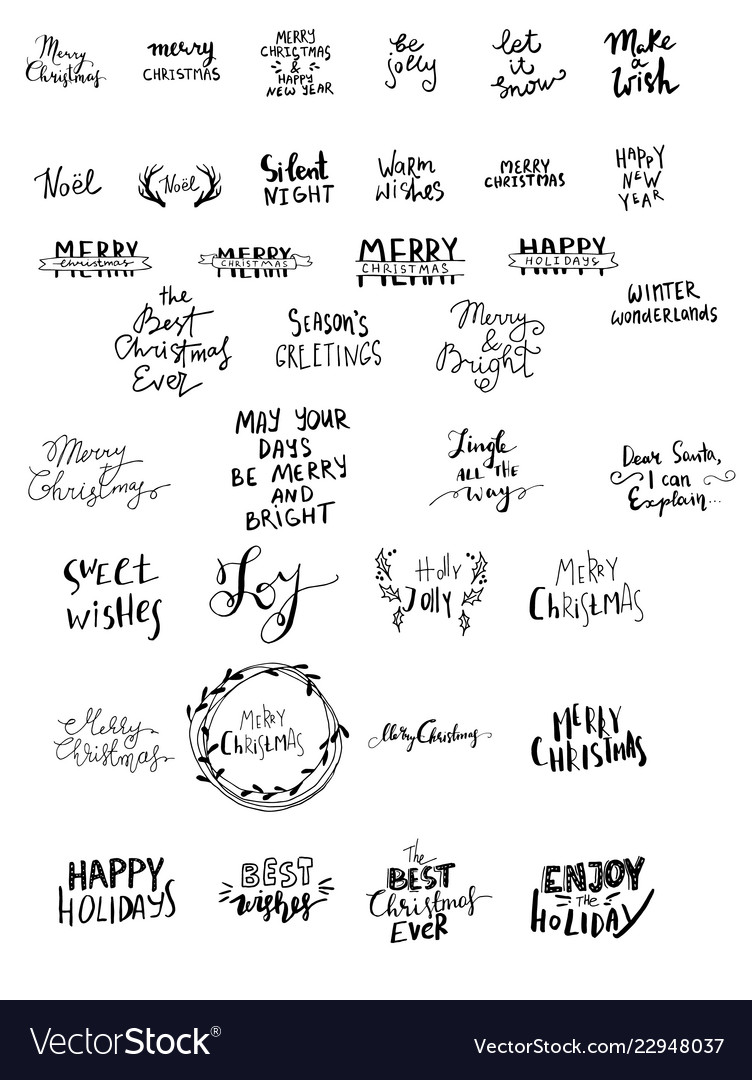 Merry
Christmas
merry
CHRISTMAS
MERRY
CHRISTMAS
&
HAPPY
NEW YEAR
be
jolly
let
it
snow
Make
a
Wish
Noël
Noël
Silent
NIGHT
Warm
wishes
MERRY
CHRISTMAS
HAPPY
NEW
YEAR
MERRY
christmas
MERRY
CHRISTMAS
MERRY
CHRISTMAS
HAPPY
HOLIDAYS
the
Best
Christmas
Ever
SEASON'S
GREETINGS
Merry
&
Bright
WINTER
wonderlands
Merry
Christmas
MAY YOUR
DAYS
BE MERRY
AND
BRIGHT
Jingle
ALL THE
way
Dear Santa,
I can
Explain...
SWEET
wisHes
Joy
Holly
Jolly
MERRY
CHRISTMAS
Merry
Christmas
MERRY
CHRISTMAS
Merry Christmas
MERRY
CHRISTMAS
HAPPY
HOLIDAYS
BEST
wishes
The
BEST
Christmas
EVER
ENJOY
THE
HOLIDAY
VectorStock®
VectorStock.com/22948037